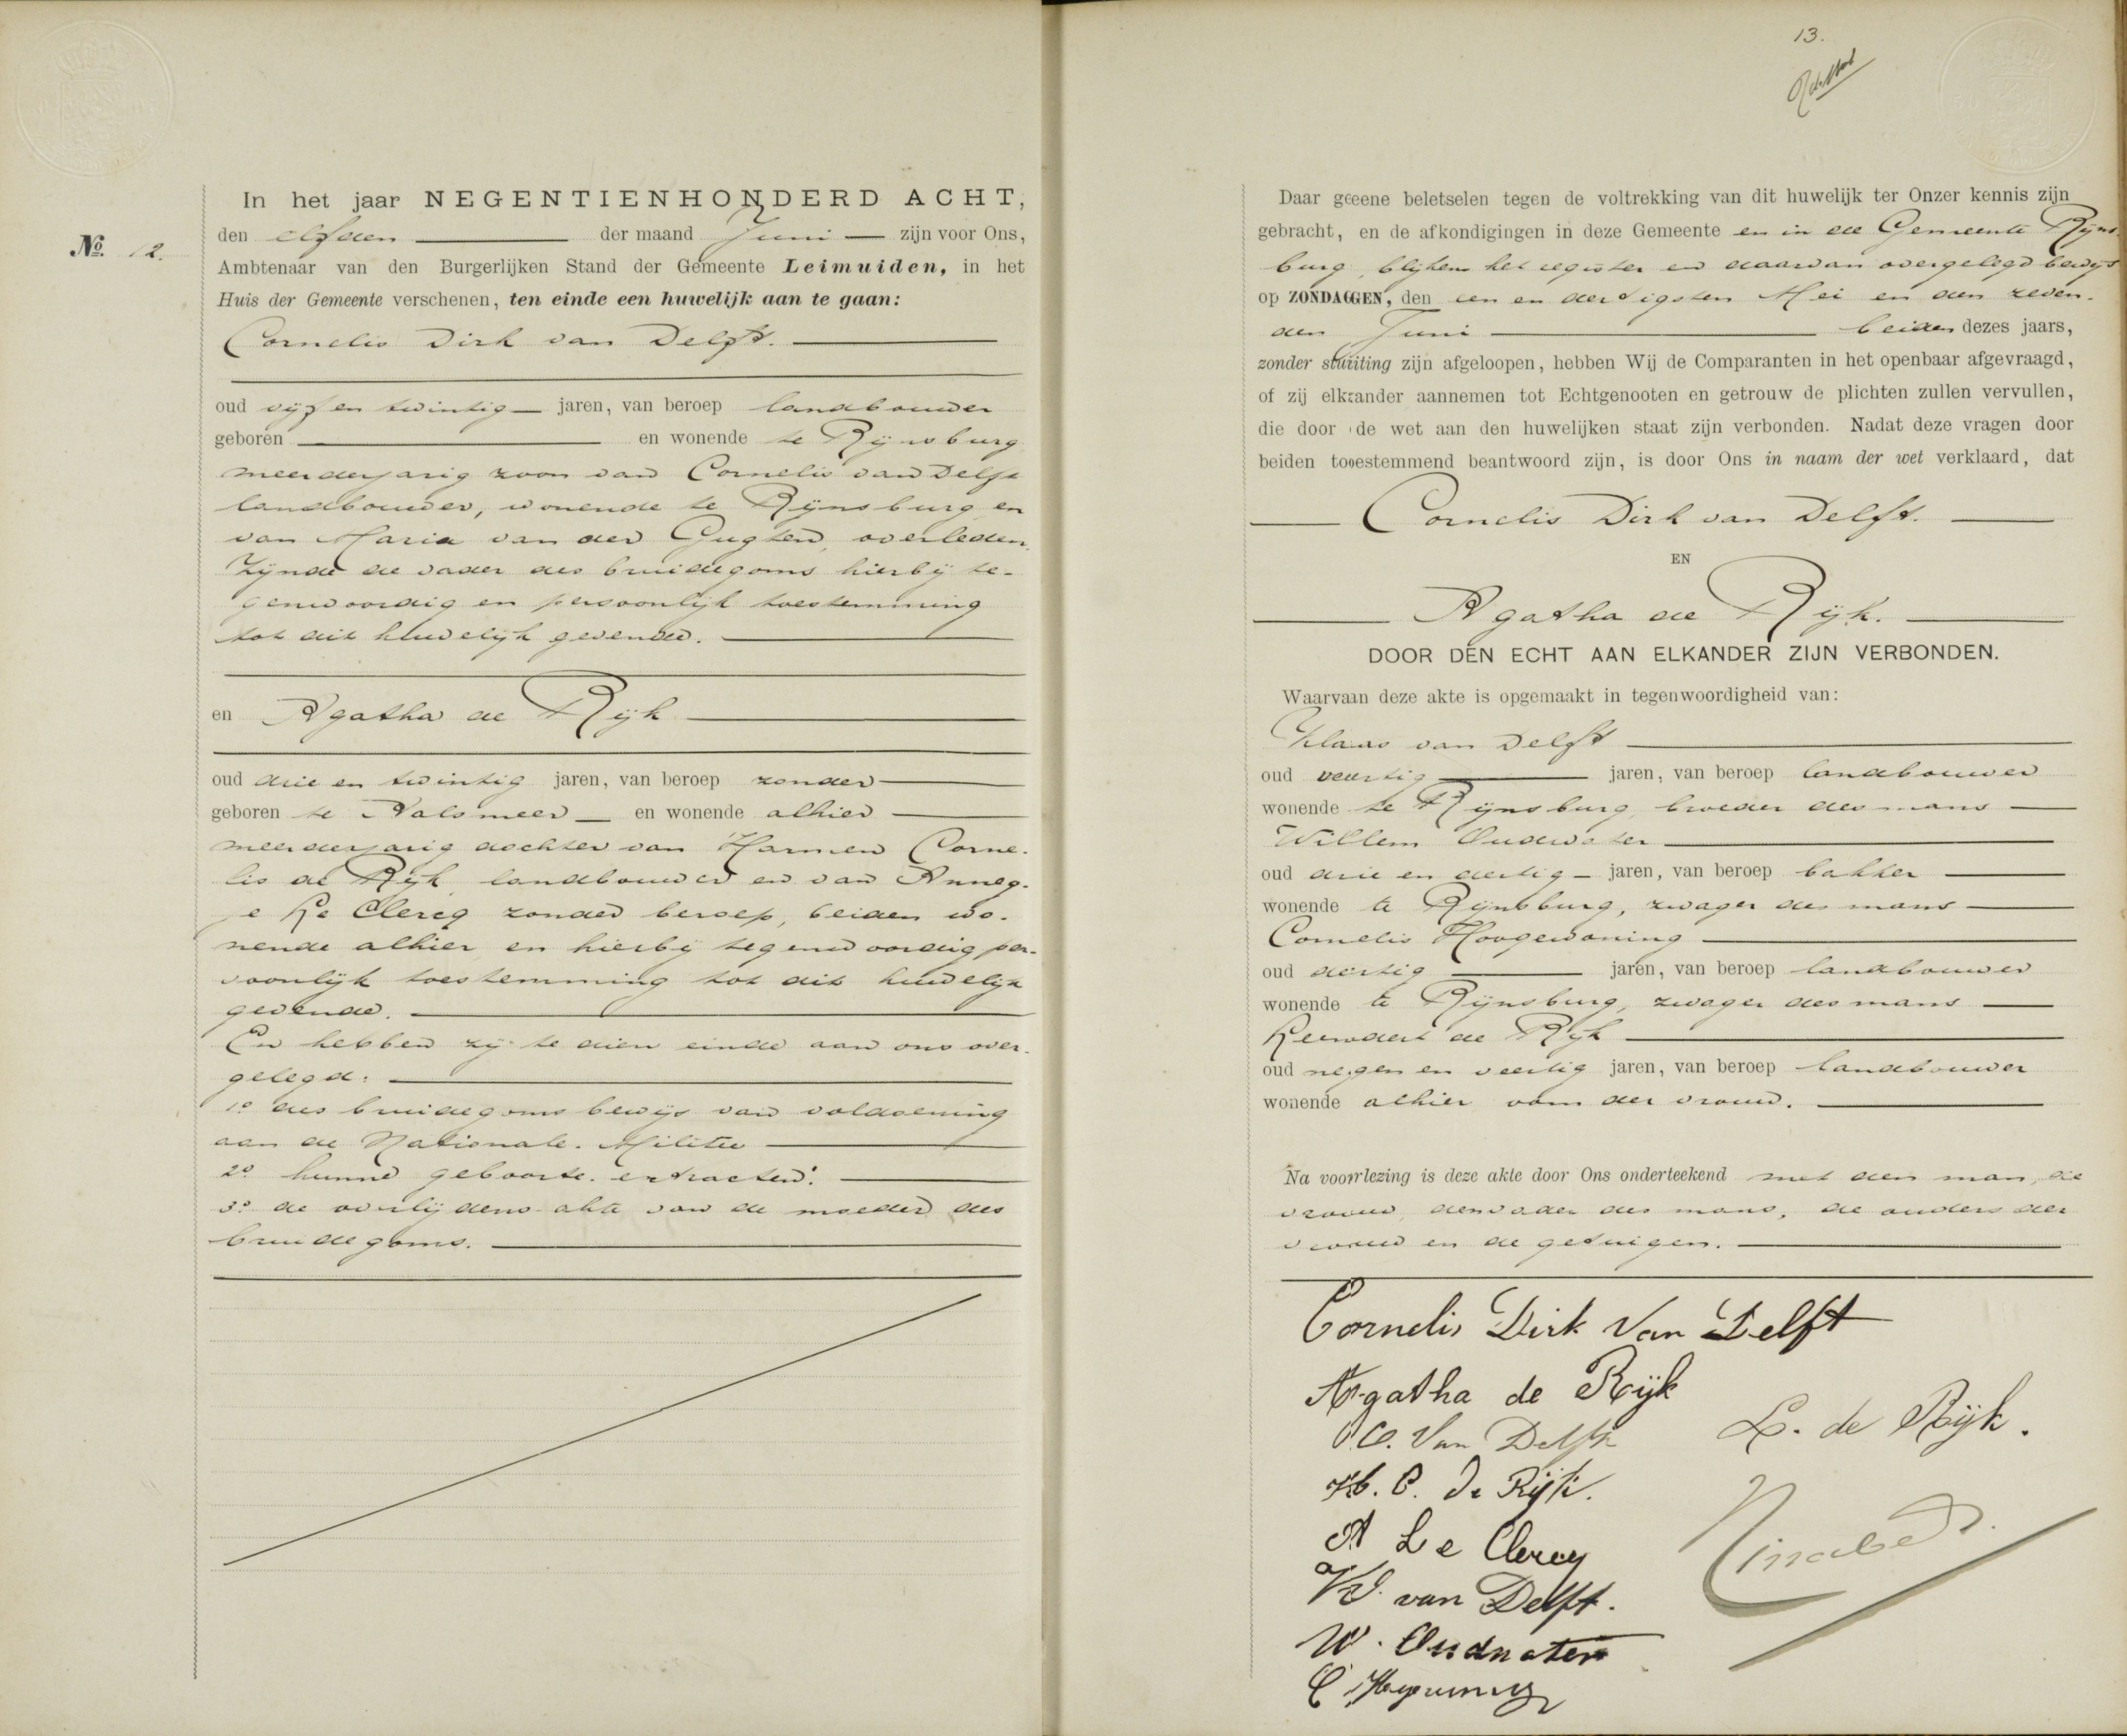 In het jaar NEGENTIENHONDERD ACHT,
den elfden der maand Juni zijn voor Ons,
No. 12.
Ambtenaar van den Burgerlijken Stand der Gemeente Leimuiden, in het
Huis der Gemeente verschenen, ten einde een huwelijk aan te gaan:
Cornelis Dirk van Delft.
oud vijf en twintig jaren, van beroep landbouwer
geboren en wonende te Rijnsburg
meerderjarig zoon van Cornelis van Delft
landbouwer, wonende te Rijnsburg en
van Maria van der Gugten, overleden.
Zijnde de vader des bruidegoms hierbij te-
genwoordig en persoonlijk toestemming
tot dit huwelijk gevende.
en Agatha de Rijk
oud drie en twintig jaren, van beroep zonder
geboren te Aalsmeer en wonende alhier
meerderjarig dochter van Harmen Corne-
lis de Rijk, landbouwer en van Anneg-
je Le Clercq zonder beroep, beiden wo-
nende alhier en hierbij tegenwoordig per-
soonlijk toestemming tot dit huwelijk
gevende.
En hebben zij te dien einde aan ons over-
gelegd:
1o des bruidegoms bewijs van voldoening
aan de Nationale Militie
2o hunne geboorte-extracten:
3o de overlijdens-akte van de moeder des
bruidegoms.
13.
Daar geeene beletselen tegen de voltrekking van dit huwelijk ter Onzer kennis zijn
gebracht, en de afkondigingen in deze Gemeente en in de Gemeente Rijns-
burg, blijkens het register en daarvan overgelegd bewijs
op ZONDAGGEN, den een en dertigsten Mei en den zeven-
den Juni beiden dezes jaars,
zonder stuiting zijn afgeloopen, hebben Wij de Comparanten in het openbaar afgevraagd,
of zij elkzander aannemen tot Echtgenooten en getrouw de plichten zullen vervullen,
die door de wet aan den huwelijken staat zijn verbonden. Nadat deze vragen door
beiden toeestemmend beantwoord zijn, is door Ons in naam der wet verklaard, dat
Cornelis Dirk van Delft.
EN
Agatha de Rijk.
DOOR DEN ECHT AAN ELKANDER ZIJN VERBONDEN.
Waarvaan deze akte is opgemaakt in tegenwoordigheid van:
Klaas van Delft
oud veertig jaren, van beroep landbouwer
wonende te Rijnsburg, broeder des mans
Willem Oudwater
oud drie en dertig jaren, van beroep bakker
wonende te Rijnsburg, zwager des mans
Cornelis Hoogewoning
oud dertig jaren, van beroep landbouwer
wonende te Rijnsburg, zwager des mans
Leendert de Rijk
oud negen en veertig jaren, van beroep landbouwer
wonende alhier oom der vrouw.
Na voorrlezing is deze akte door Ons onderteekend met den man, de
vrouw, den vader des mans, de ouders der
vrouw en de getuigen.
Cornelis Dirk Van Delft
Agatha de Rijk
C. Van Delft
L. de Rijk.
H. C. de Rijk.
A Le Clercq
K. van Delft.
W. Oudwater